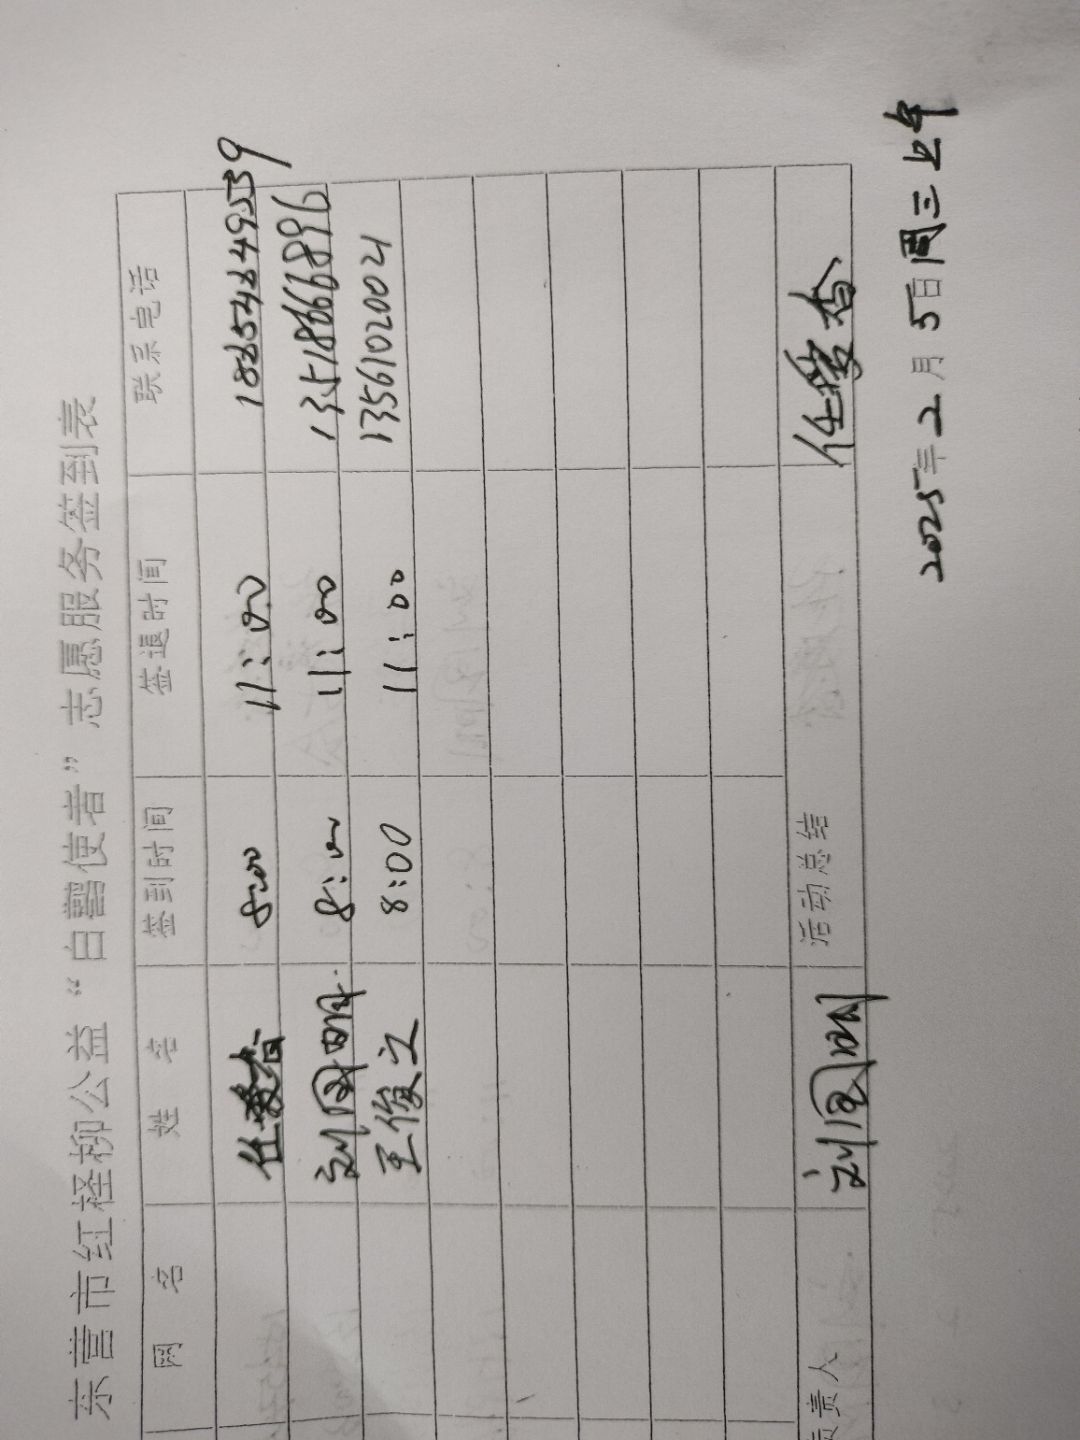 东营市红柽柳公益“白鹭使者”志愿服务签到表
网 名 姓 名 签到时间 签退时间 联系电话
任爱香 8:00 11:00 18654649539
刘国明 8:00 11:00 13518669896
王俊之 8:00 11:00 13561020021
负责人 刘国明 活动总结 任爱香
2025年2月5日周三上午